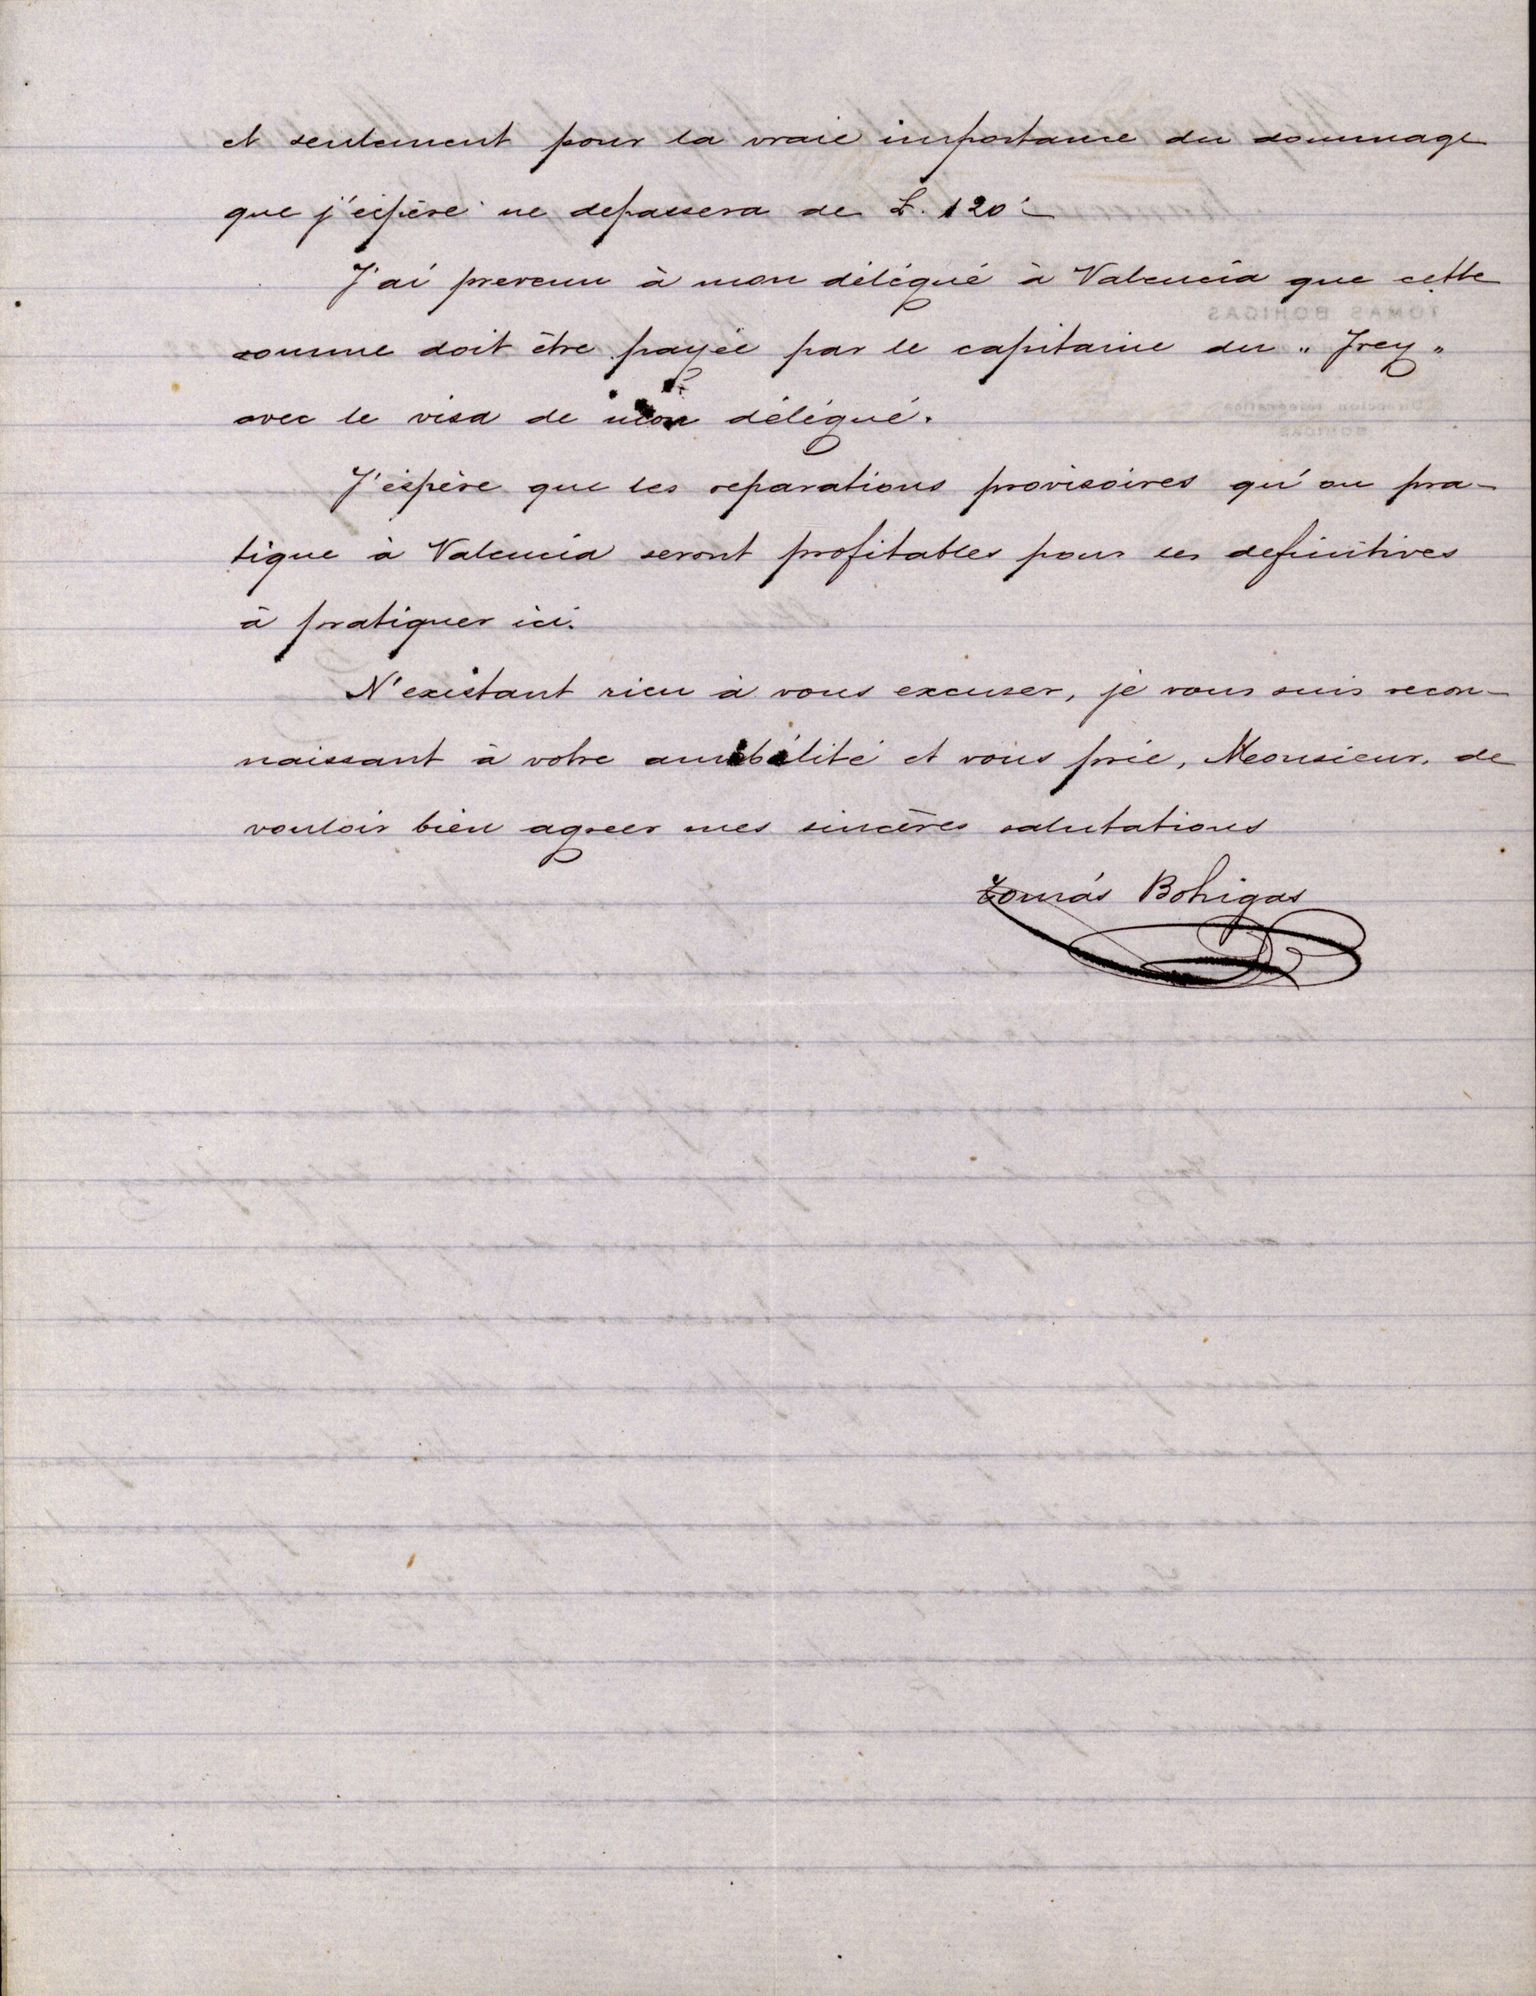 et seulement pour la vraie importance du dommage
que j'éspère ne depassera de £. 120 '-
J'ai prevenu à mon délégué à Valencia que cette
somme doit être payée par le capitaine du " Frey "
avec le visa de mon délégué.
J'éspère que les reparations provisoires qu'on pra-
tique à Valencia seront profitables pour les definitives
à pratiquer ici.
N'existant rien à vous excuser, je vous suis recon-
naissant à votre amabilité et vous prie, Monsieur, de
vouloir bien agreer mes sincères salutations
Tomás Bohigas